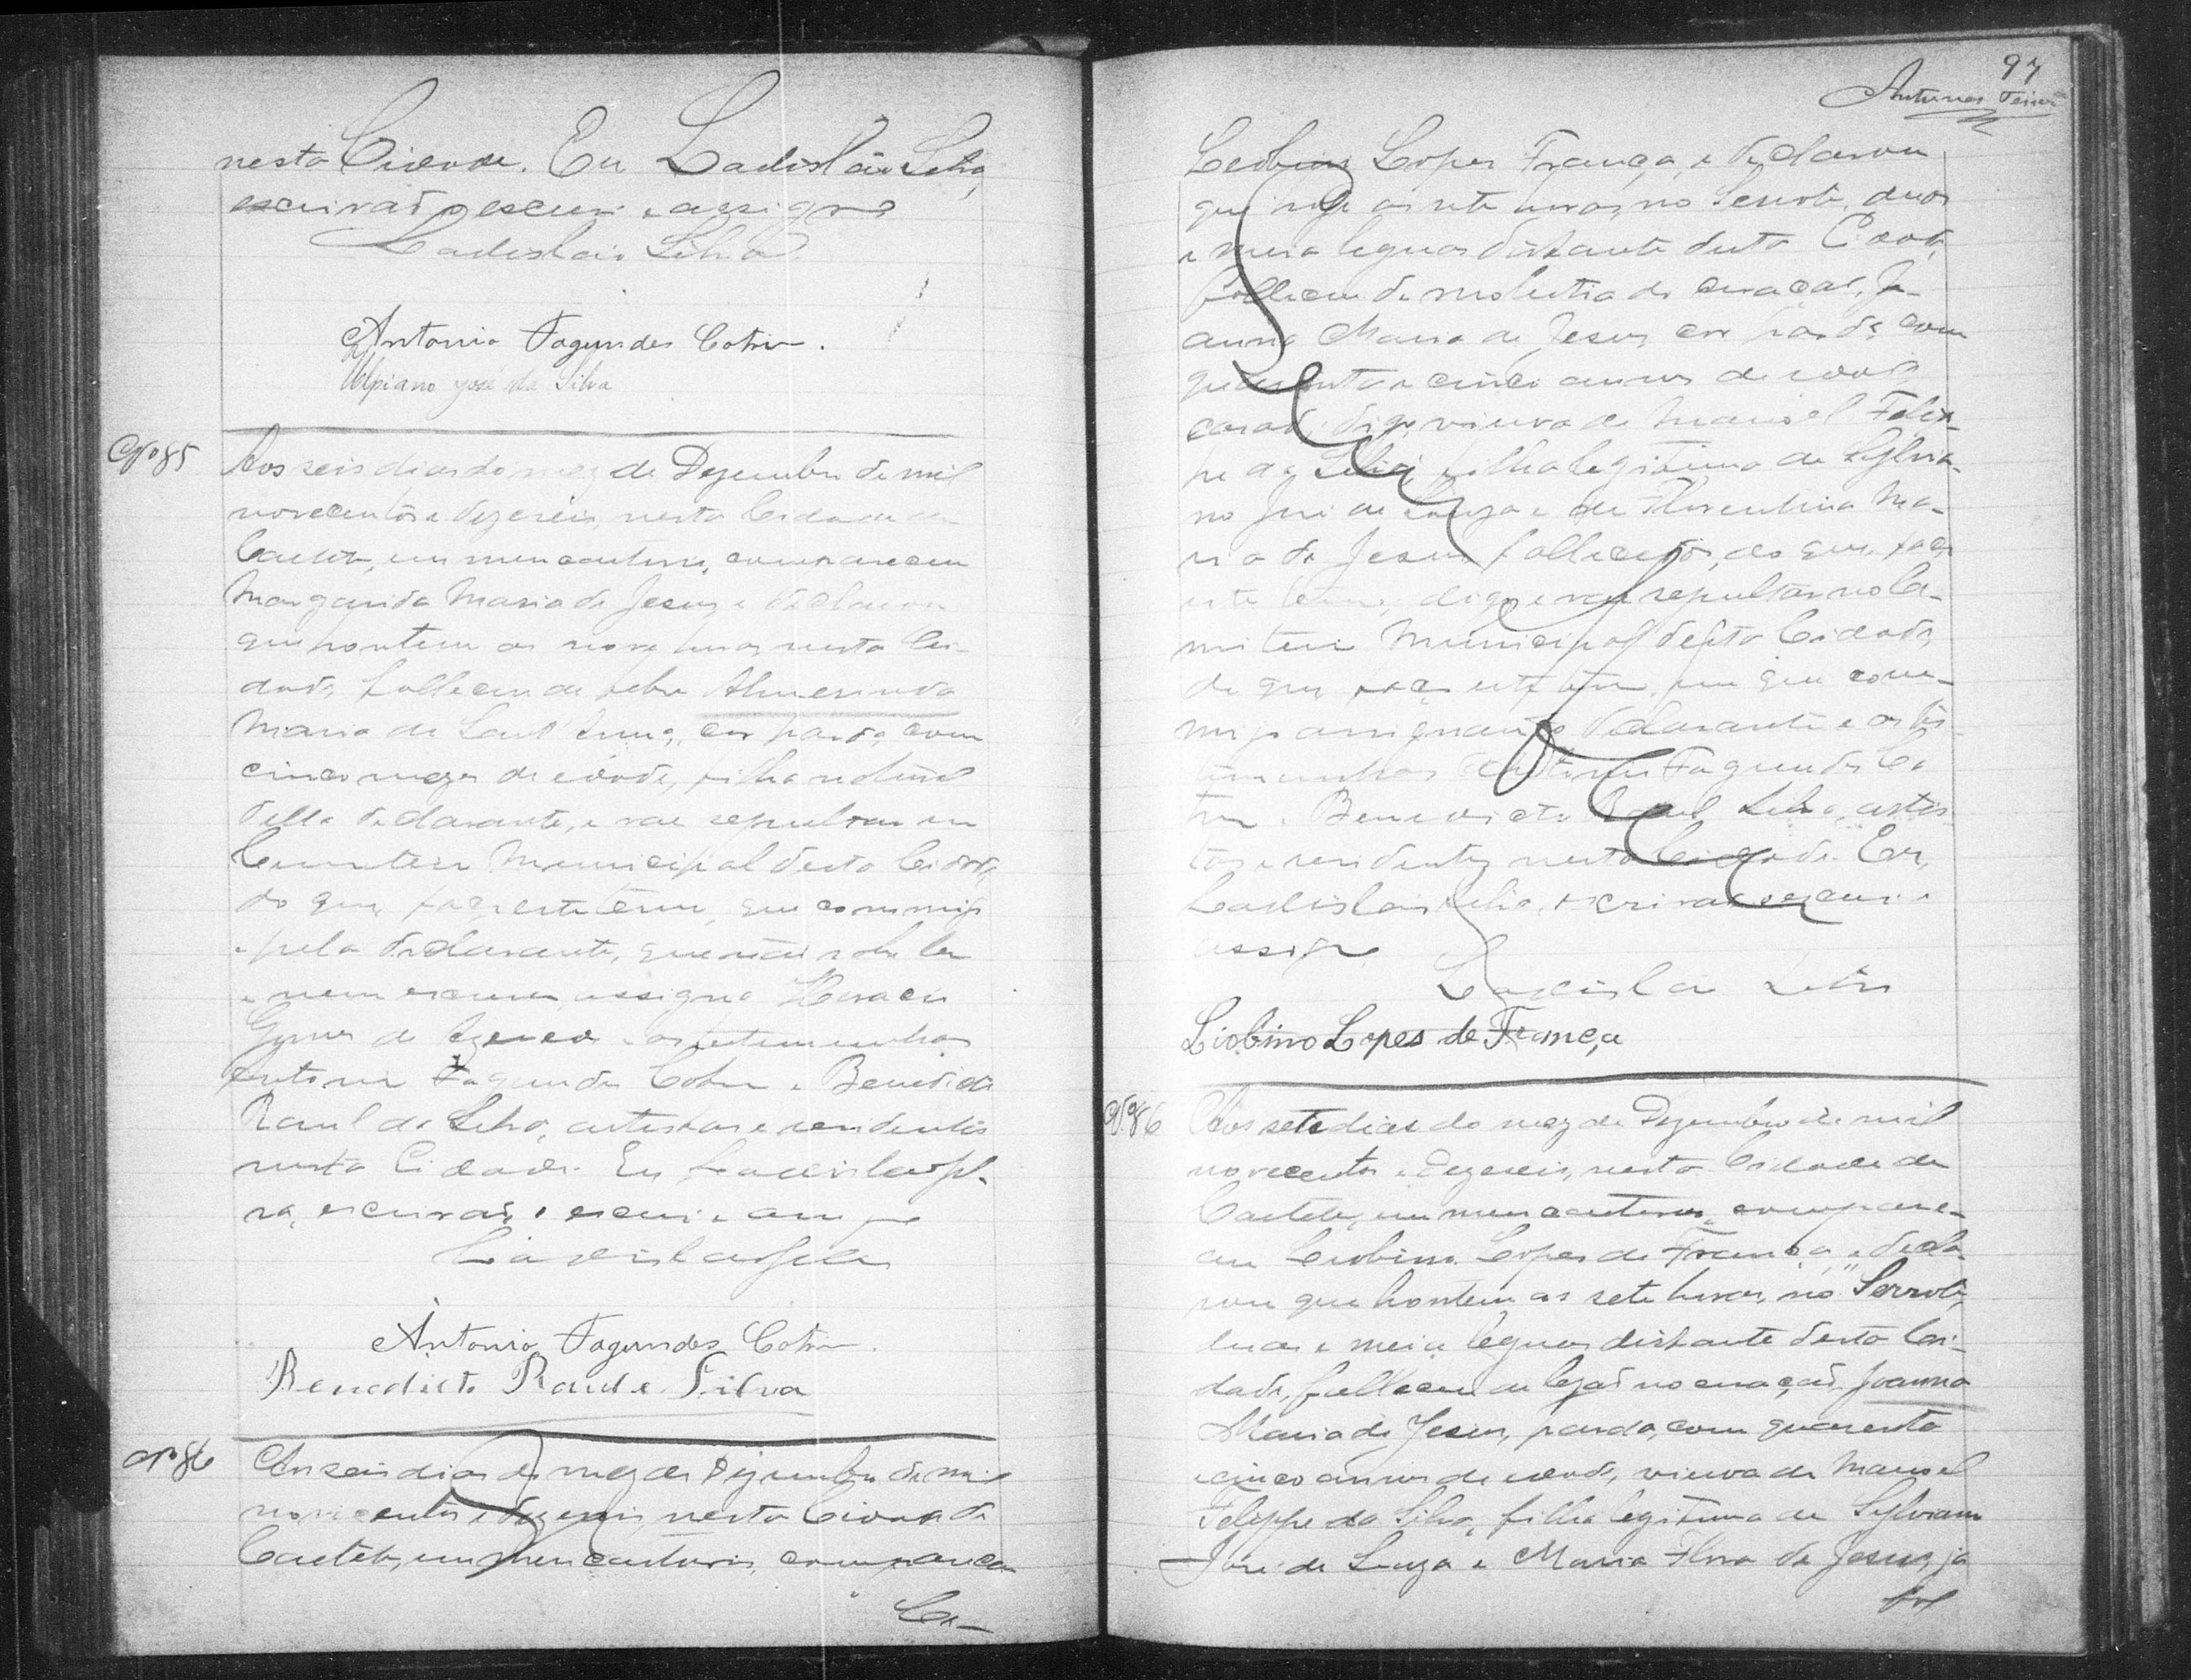 nesta Cidade. Eu Ladisláo Silva,
escrivão o escrevi e assigno
Ladislaio Silva
Antonio Fagundes Cotrim.
Ulpiano José da Silva
Nº 85
Aos seis dias do mez de Dezembro de mil
novecentos e dezeseis, nesta Cidade de
Caeteté, em meu cartorio, compareceu
Margarida Maria de Jesus e declarou
que hontem as nove horas nesta Ci-
dade, falleceu de febre Almerinda
Maria de Sant'Anna, cor parda, com
cinco mezes de edade, filha natural
della declarante, e vae sepultar no
Cemiterio Municipal desta Cidade,
do que, faço este termo, que commigo
e pela declarante, que não sabe ler
e nem escrever, assigna
Gomes de Azevedo e as testemunhas
Antonio Fagundes Cotrim e Benedicto
Raul da Silva, artistas e residentes
nesta Cidade. Eu Ladislao Sil-
va, escrivão, o escrevi e assigno
Ladislao Silva
Antonio Fagundes Cotrim.
Benedicto Raul e Silva
Nº 86
Aos seis dias do mez de Dezembro de mil
novecentos e dezeseis, nesta Cidade de
Caeteté, em meu cartorio, compareceu
97
Antunes Teixeira
Leobino Lopes França, e declarou
que hoje as sete horas, no Serrote, duas
e meia leguas distante desta Cidade,
falleceu de molestia do coração, Jo-
anna Maria de Jesus, cor parda, com
quarenta e cinco annos de edade,
casada, digo, viuva de Manoel Felip-
pe da Silva, filha legitima de Sylvia-
no José de Souza e de Florentina Ma-
ria de Jesus, fallecidos, do que faço
este termo, digo e vae sepultar no Ce-
miterio Municipal desta Cidade,
do que faço este termo, em que com-
migo assignam o declarante e as tes-
temunhas Antonio Fagundes Co-
trim e Benedicto Raul Silva, artis-
tas e residentes nesta Cidade. Eu,
Ladislao Silva, escrivão o escrevi e
assigno
Ladislao Silva
Liobino Lopes de França
Nº 86
Aos sete dias do mez de Dezembro de mil
novecentos e dezeseis, nesta Cidade de
Caeteté, em meu cartorio, compare-
ceu Leobino Lopes de França, e decla-
rou que hontem as sete horas, no "Serrote,
duas e meia leguas distante desta Ci-
dade, falleceu de lezão no coração, Joanna
Maria de Jesus, parda, com quarenta
e cinco annos de edade, viuva de Manoel
Felippe da Silva, filha legitima de Sylviano
José de Souza e Maria Flora de Jesus, já